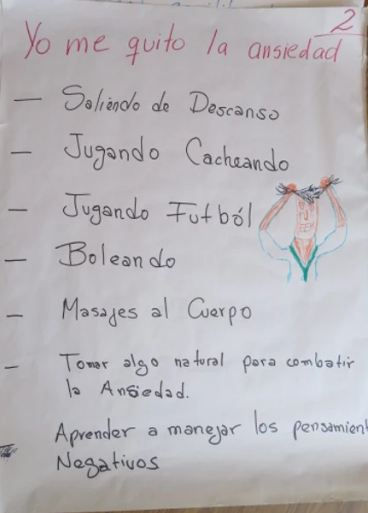 2
Yo me quito la ansiedad
— Saliendo de Descanso
— Jugando Cacheando
— Jugando Futból
— Boleando
— Masajes al Cuerpo
— Tomar algo natural para combatir
la Ansiedad.
Aprender a manejar los pensamient
Negativos